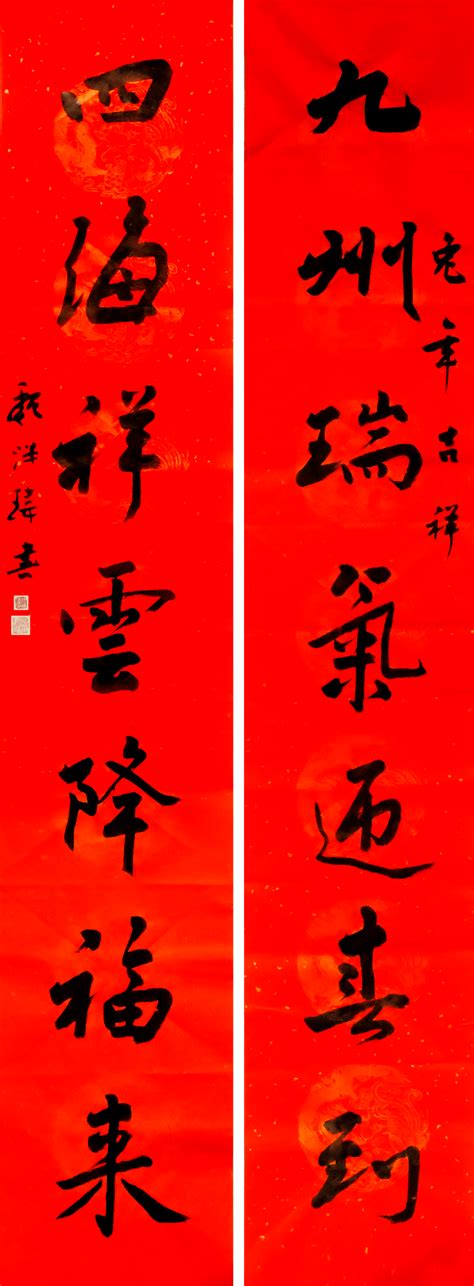 九州瑞氣迎春到
兔年吉祥
四海祥雲降福来
魏洪瑋書